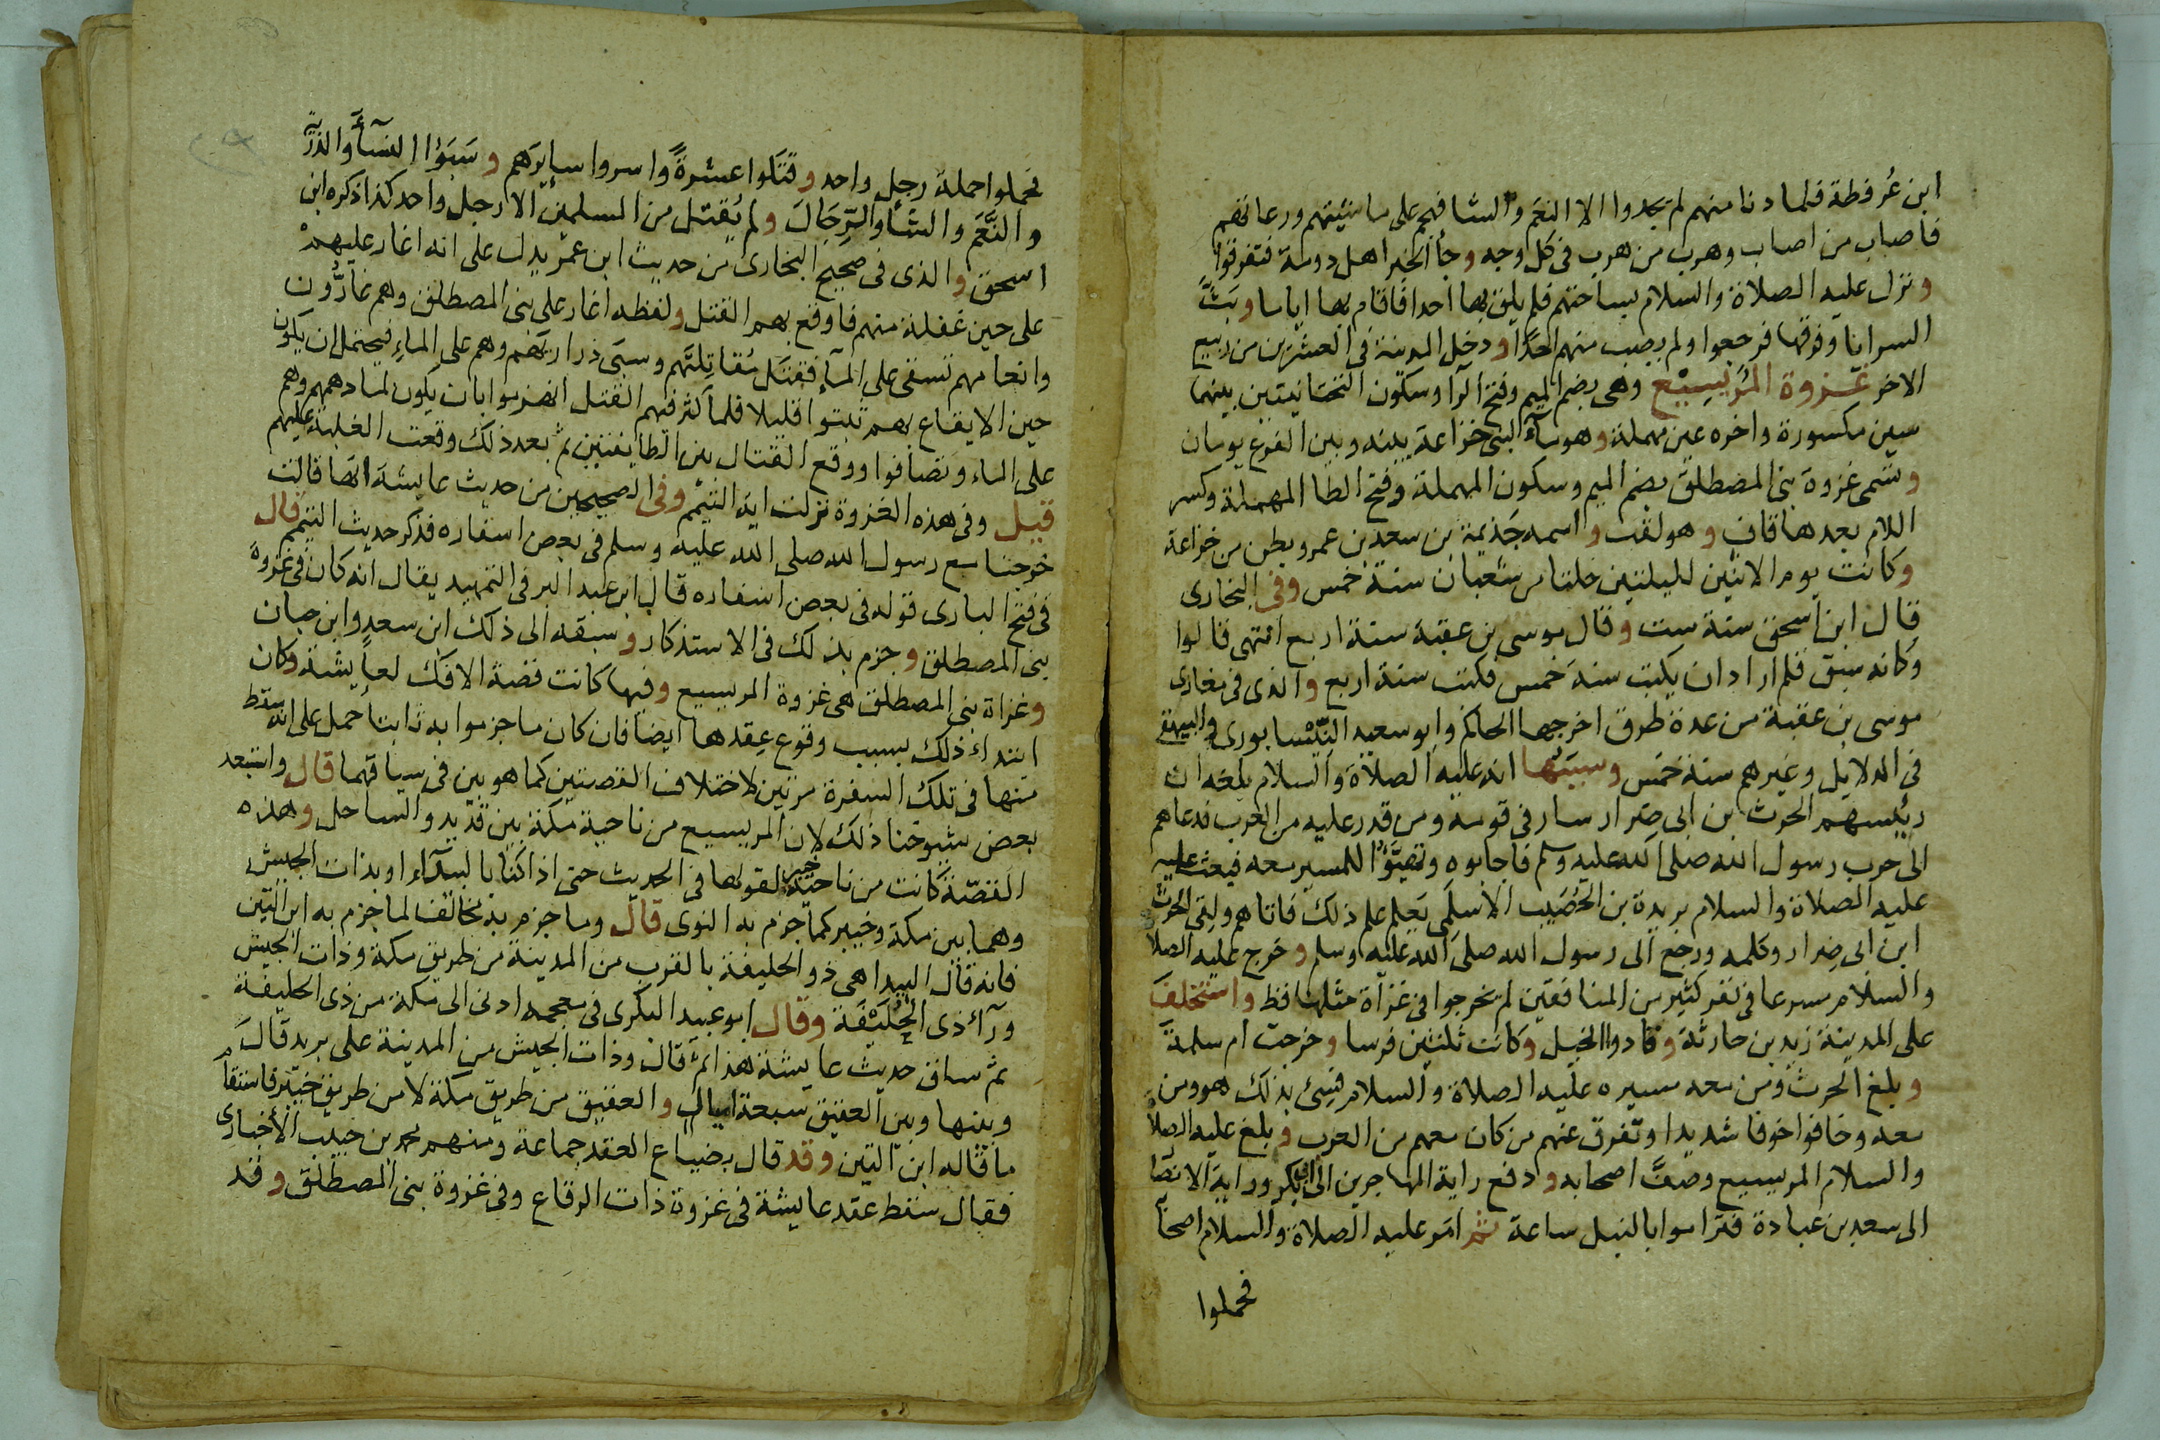 ابن عُرفطة فلما دنا منهم لم يجدوا الا النعم والشا فهجم على ماشيتهم ورعاتهم
فاصاب من اصاب وهرب من هرب فى كل وجه وجأ الخبر اهل دومة فتفرقوا
ونزل عليه الصلاة والسلام بساحتهم فلم يلق بها احدا فاقام بها اياما وبَثّ
السرايا وفرقها فرجعوا ولم يصب منهم احدًا ودخل المدينة فى العشرين من ربيع
الاخر غزوة المُرَيسيع وهى بضم الميم وفتح الرا وسكون التحتانيتين بينهما
سين مكسورة واخره عين مهملة وهو مآء لبنى خزاعة بينه وبين الفرع يومان
وتسمى غزوة بنى المصطلق بضم الميم وسكون المهملة وفتح الطا المهملة وكسر
اللام بعدها قاف وهو لقب واسمه جَذيمة بن سعد بن عمرو بطن من خزاعة
وكانت يوم الاثنين لليلتين خلتا من شعبان سنة خمس وفى البخارى
قال ابن اسحق سنة ست وقال موسى بن عقبة سنة اربع انتهى قالوا
وكانه سبق قلم اراد ان يكتب سنة خمس فكتب سنة اربع والذى فى مغازى
موسى بن عقبة من عدة طرق اخرجها الحاكم وابو سعيد النيسابورى والبيهقى
فى الدلايل وغيرهم سنة خمس وسببُها انه عليه الصلاة والسلام بلغه ان
رئيسهم الحرث بن ابى ضرار سار فى قومه ومن قدر عليه من العرب فدعاهم
الى حرب رسول الله صلى الله عليه وسلم فاجابوه وتهيّؤا للمسير معه فبعث عليه
عليه الصلاة والسلام بريدة بن الحُصَيب الاسلمى يَعلم علم ذلك فاتاهم ولقى الحرث
ابن ابى ضرار وكلمه ورجع الى رسول الله صلى الله عليه وسلم وخرج عليه الصلا
والسلام مسرعا فى نفر كثير من المنافقين لم يخرجوا فى غزاة مثلها قط واستخلف
على المدينة زيد بن حارثة وقادوا الخيل وكانت ثلثين فرسا وخرجت ام سلمة
وبلغ الحرث ومن معه مسيره عليه الصلاة والسلام فسئ بذلك هو ومن
معه وخافوا خوفا شديدا وتفرق عنهم من كان معهم من العرب وبلغ عليه الصلا
والسلام المريسيع وصفّ اصحابه ودفع راية المهاجرين الى ابى بكر وراية الانصا
الى سعد بن عبادة فتراموا بالنبل ساعة ثم امر عليه الصلاة والسلام اصحا
فحملوا
فحملوا حملة رجل واحد وقتلوا عشرةً واسروا سايرهم وسَبَوُا النسأ والذرّيّة
والنَّعَم والشأ والرّجال ولم يُقتل من المسلمين الا رجل واحد كذا ذكره ابن
اسحق والذى فى صحيح البخارى من حديث ابن عمر يدل على انه اغار عليهم
على حين غفلة منهم فاوقع بهم القتل ولفظه اغار على بنى المصطلق وهم غارّون
وانعامهم تسقى على المآء فقتل مُقاتلتَهم وسبَى ذراريَهم وهم على الماء فيحتمل ان يكون
حين الايقاع بهم ثبتوا قليلا فلما كثر فيهم القتل انهزموا بان يكون لما دهمهم وهم
على الماء وتصافوا ووقع القتال بين الطايفتين ثم بعد ذلك وقعت الغلبة عليهم
قيل وفى هذه الغزوة نزلت اية التيمم وفى الصحيحين من حديث عايشة انها قالت
خرجنا مع رسول الله صلى الله عليه وسلم فى بعض اسفاره فذكر حديث التيمم قال
فى فتح البارى قوله فى بعض اسفاره قال ابن عبد البر فى التمهيد يقال انه كان فى غزوة
بنى المصطلق وجزم بذلك فى الاستذكار وسبقه الى ذلك ابن سعد وابن حبان
وغزاة بنى المصطلق هى غزوة المريسيع وفيها كانت قصة الافك لعايشة وكان
ابتداء ذلك بسبب وقوع عِقدها ايضا فان كان ما جزموا به ثابتا حمل على انه سقط
منها فى تلك السفرة مرتين لاختلاف القصتين كما هو بين فى سياقهما قال واستبعد
بعض شيوخنا ذلك لان المريسيع من ناحية مكة بين قديد والساحل وهذه
القصّة كانت من ناحية خيبر لقولها فى الحديث حتى اذا كنا بالبيدآء او بذات الجيش
وهما بين مكة وخيبر كما جزم به النوى قال وما جزم به مخالف لما جزم به ابن التين
فانه قال البيدا هى ذو الحليفة بالقرب من المدينة من طريق مكة وذات الجيش
ورآء ذى الحُلَيْفَة وقال ابو عبيد البكرى فى معجمه ادنى الى مكة من ذى الحليفة
ثم ساق حديث عايشة هذا ثم قال وذات الجيش من المدينة على بريد قال
وبينها وبين العقيق سبعة اميال والعقيق من طريق مكة لا من طريق خيبر فاستقا
ما قاله ابن التين وقد قال بضياع العقد جماعة ومنهم محمد بن حبيب الأخبارى
فقال سقط عقد عايشة فى غزوة ذات الرقاع وفى غزوة بنى المصطلق وقد